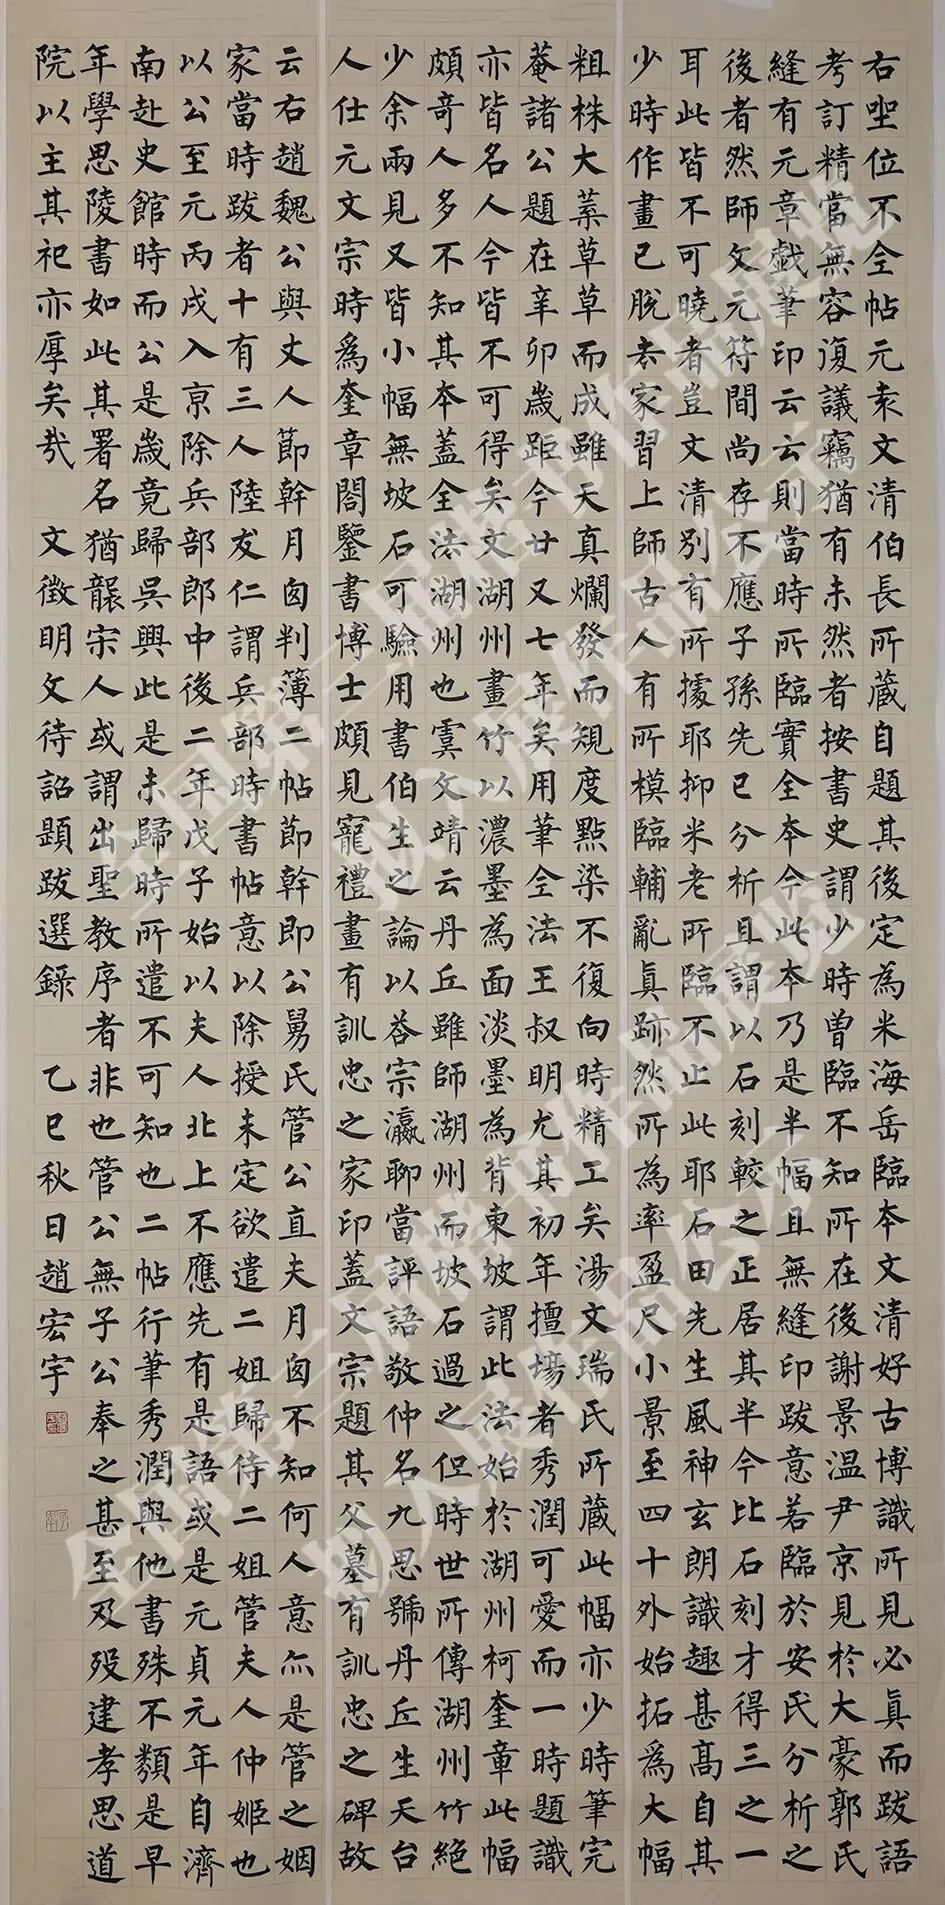 右坐位不全帖元袁文清伯長所蔵自題其後定為米海岳臨本文清好古博識所見必眞而跋語
考訂精當無容復議竊猶有未然者按書史謂少時曽臨不知所在後謝景温尹京見於大豪郭氏
縫有元章戲筆印云云則當時所臨實全本今此本乃是半幅且無縫印跋意若臨於安氏分析之
後者然師文元符間尚存不應子孫先已分析且謂以石刻較之正居其半今比石刻才得三之一
耳此皆不可曉者豈文清别有所據耶抑米老所臨不止此耶石田先生風神玄朗識趣甚高自其
少時作畫已脫去家習上師古人有所模臨輔亂眞跡然所為率盈尺小景至四十外始拓為大幅
粗株大葉草草而成雖天真爛發而規度點染不復向時精工矣湯文瑞氏所蔵此幅亦少時筆完
菴諸公題在辛卯歲距今廿又七年矣用筆全法王叔明尤其初年擅場者秀潤可愛而一時題識
亦皆名人今皆不可得矣文湖州畫竹以濃墨為面淡墨為背東坡謂此法始於湖州柯奎章此幅
頗竒人多不知其本蓋全法湖州也虞文靖云丹丘雖師湖州而坡石過之但時世所傳湖州竹絶
少余兩見又皆小幅無坡石可驗用書伯生之論以荅宗瀛聊當評語敬仲名九思號丹丘生天台
人仕元文宗時爲奎章閣鑒書博士頗見寵禮畫有訓忠之家印蓋文宗題其父墓有訓忠之碑故
云右趙魏公與丈人節幹月囪判簿二帖節幹即公舅氏管公直夫月囪不知何人意亦是管之姻
家當時跋者十有三人陸友仁謂兵部時書帖意以除授未定欲遣二姐歸侍二姐管夫人仲姬也
以公至元丙戌入京除兵部郎中後二年戊子始以夫人北上不應先有是語或是元貞元年自濟
南赴史館時而公是歲竟歸吳興此是未歸時所遣不可知也二帖行筆秀潤與他書殊不類是早
年學思陵書如此其署名猶襲宋人或謂出聖教序者非也管公無子公奉之甚至及殁建孝思道
院以主其祀亦厚矣㢤 文徵明文待詔題跋選錄 乙巳秋日趙宏宇
全国第三届楷书作品展览
拟入展作品公示
全国第三届楷书作品展览
拟入展作品公示